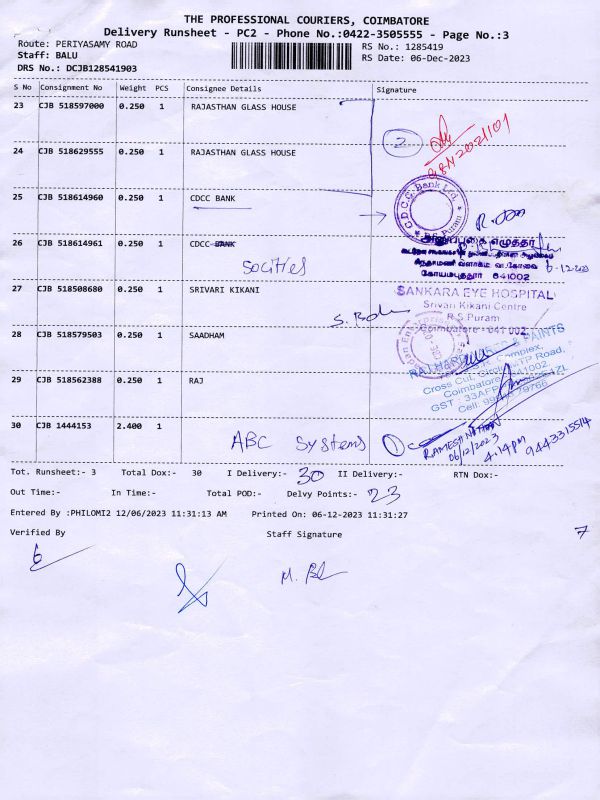 THE PROFESSIONAL COURIERS, COIMBATORE
Delivery Runsheet - PC2 - Phone No.:0422-3505555 - Page No.:3
Route: PERIYASAMY ROAD
Staff: BALU
DRS No.: DCJB128541903
RS No.: 1285419
RS Date: 06-Dec-2023
S No Consignment No Weight PCS Consignee Details Signature
23 CJB 518597000 0.250 1 RAJASTHAN GLASS HOUSE
2
24 CJB 518629555 0.250 1 RAJASTHAN GLASS HOUSE
25 CJB 518614960 0.250 1 CDCC BANK
C.D.C.C. Bank Ltd.
R.S. Puram
26 CJB 518614961 0.250 1 CDCC BANK
socities
அனுப்புகை எழுத்தர்
கோயமுத்தூர் 641002
6-12-2023
27 CJB 518508680 0.250 1 SRIVARI KIKANI
SANKARA EYE HOSPITAL
Srivari Kikani Centre
R.S.Puram
Coimbatore - 641 002
28 CJB 518579503 0.250 1 SAADHAM
& PAINTS
Complex,
Cross Cut, TP Road,
Coimbatore 641002
29 CJB 518562388 0.250 1 RAJ
30 CJB 1444153 2.400 1
ABC Systems
1
RAMESH NATHAN
06/12/2023
4:14pm
9443315514
Tot. Runsheet:- 3 Total Dox:- 30 I Delivery:- 30 II Delivery:- RTN Dox:-
Out Time:- In Time:- Total POD:- Delvy Points:- 23
Entered By :PHILOMI2 12/06/2023 11:31:13 AM Printed On: 06-12-2023 11:31:27
Verified By Staff Signature
7